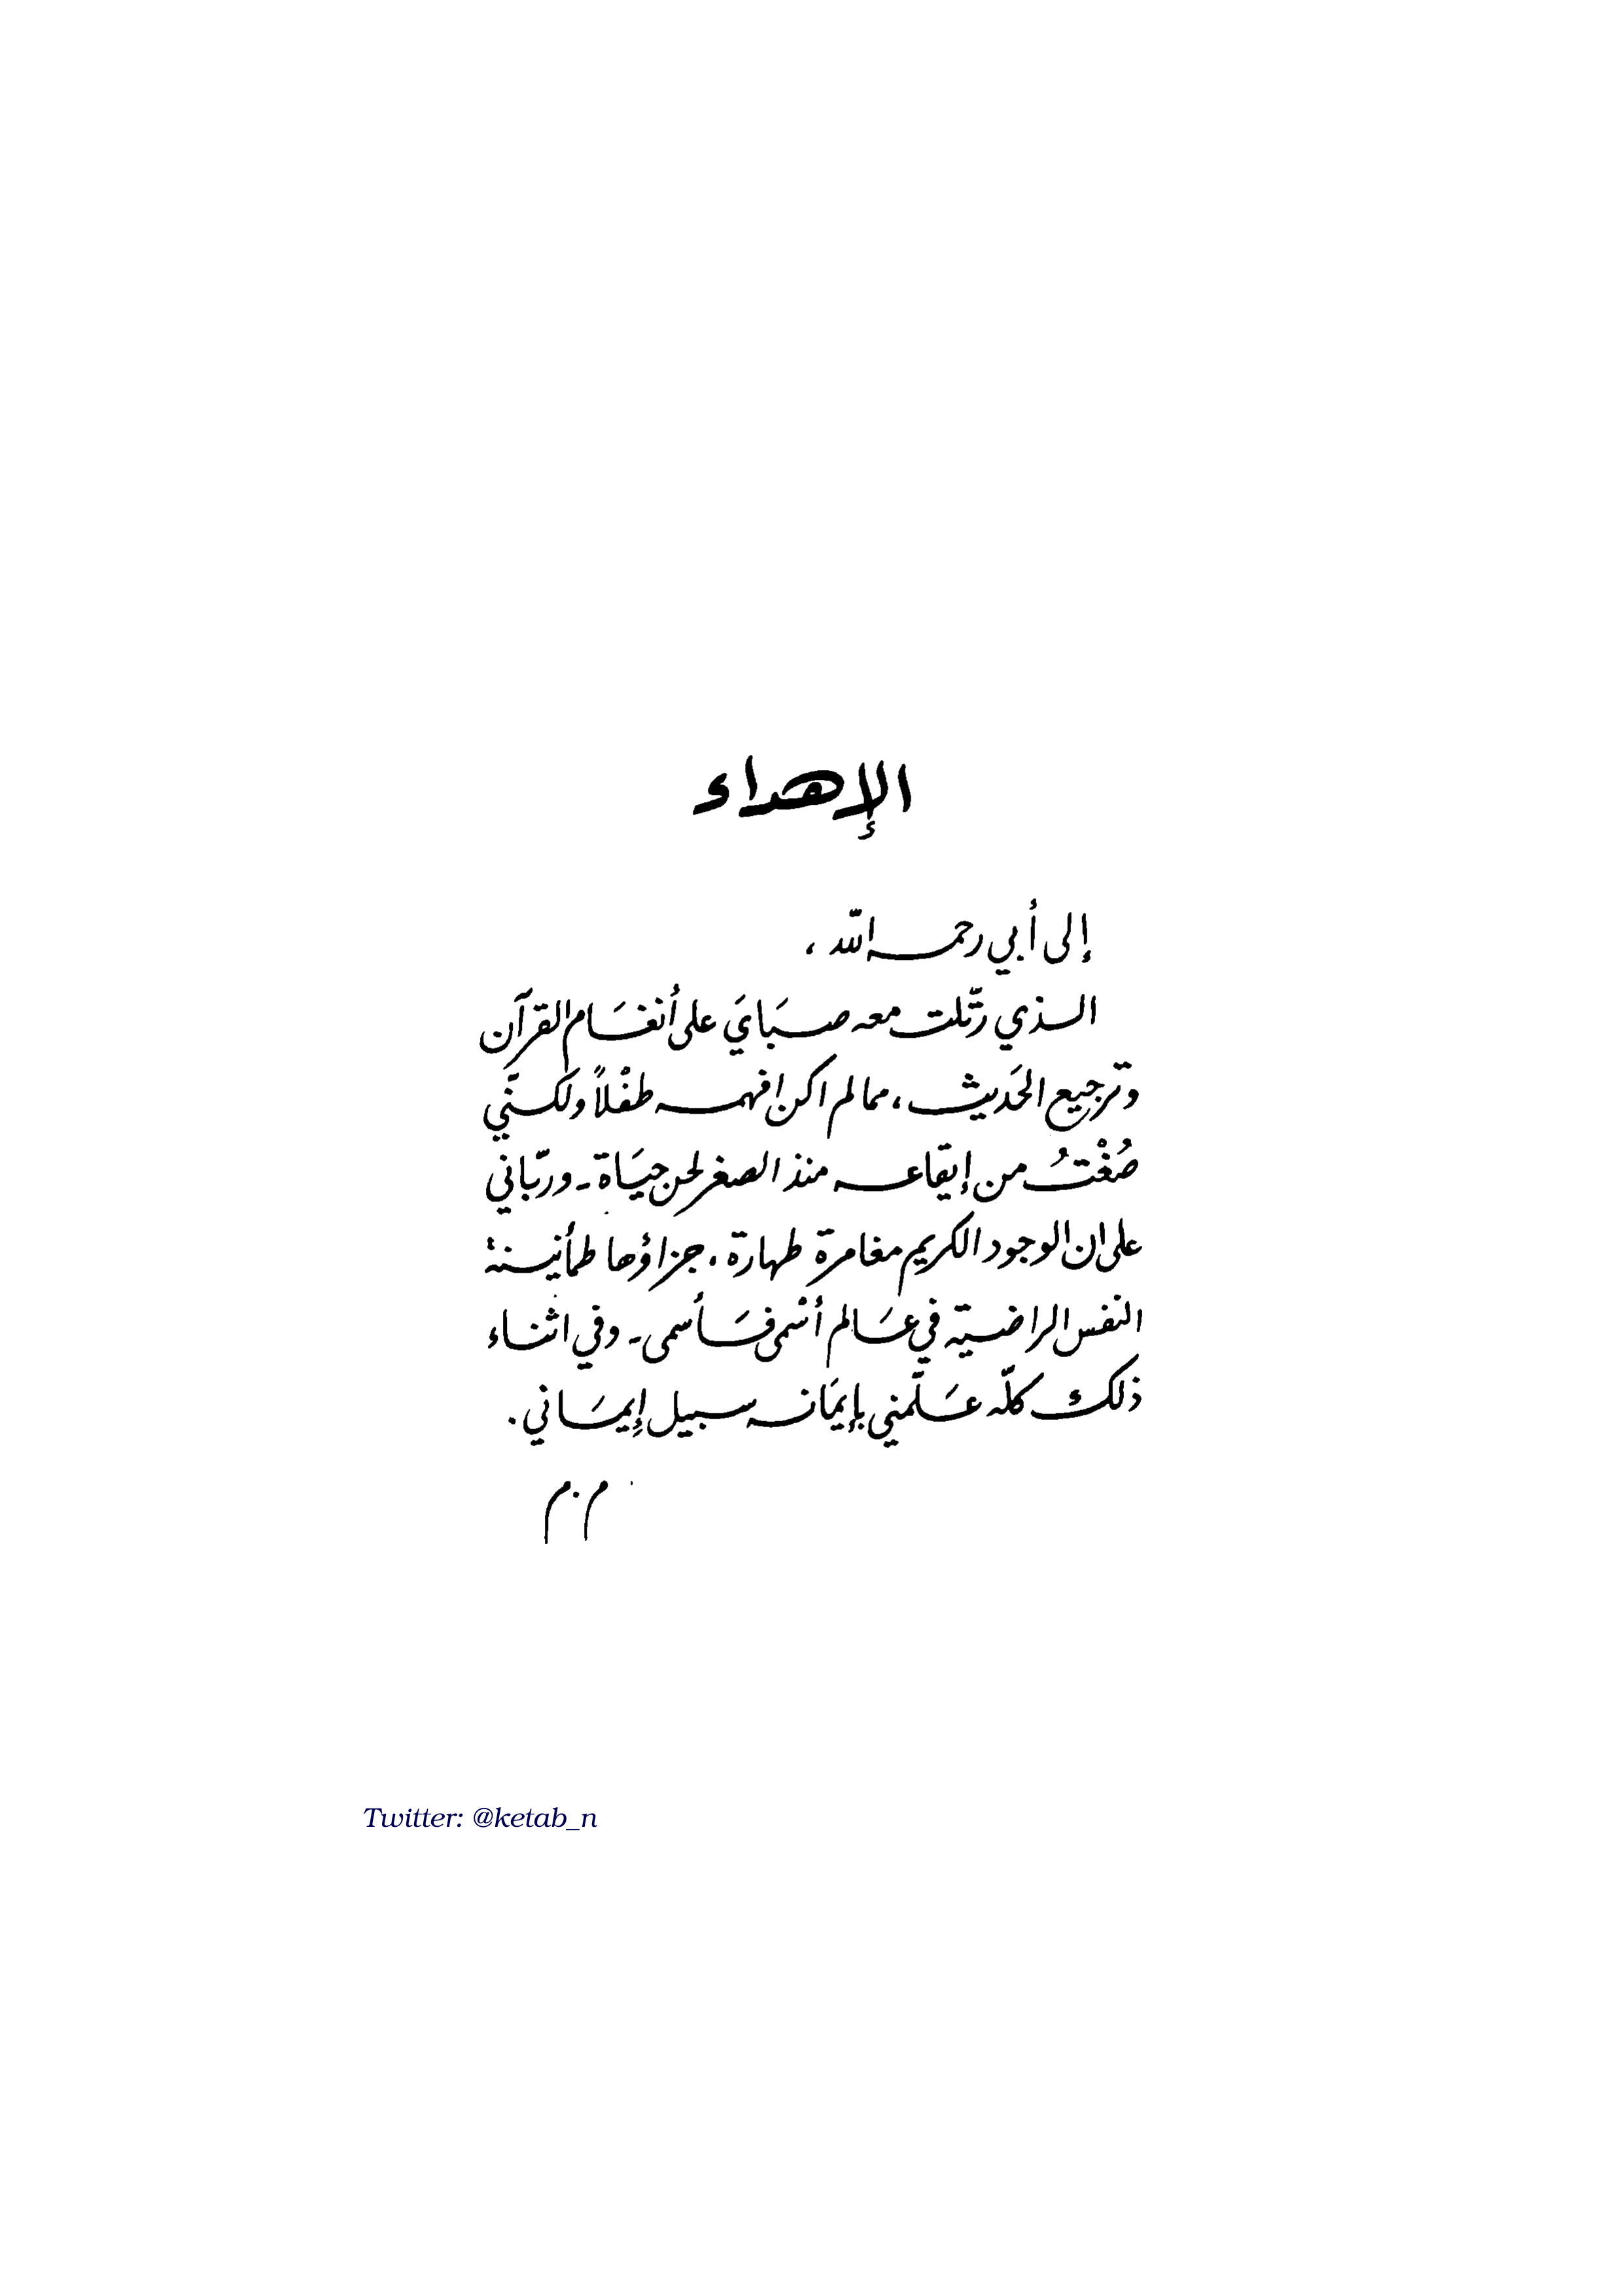 الإهداء
إلى أبي رحمه الله ،
الذي رتّلت معه صبَايَ على أنغَام القرآن
وترجيع الحَديث ، مما لم اكن افهمه طفْلاً ولكنّي
صُغْتُ من إيقَاعه منذ الصغر لحن حيَاة - وربّاني
على ان الوجود الكريم مغامرة طهارة ، جزاؤها طمأنينة
النفس الراضيَة في عَالم أسْمى فَأسمى - وفي اثناء
ذلك كلّه عَلّمني بإيمَانه سبيل إيمَاني .
م.م
Twitter: @ketab_n